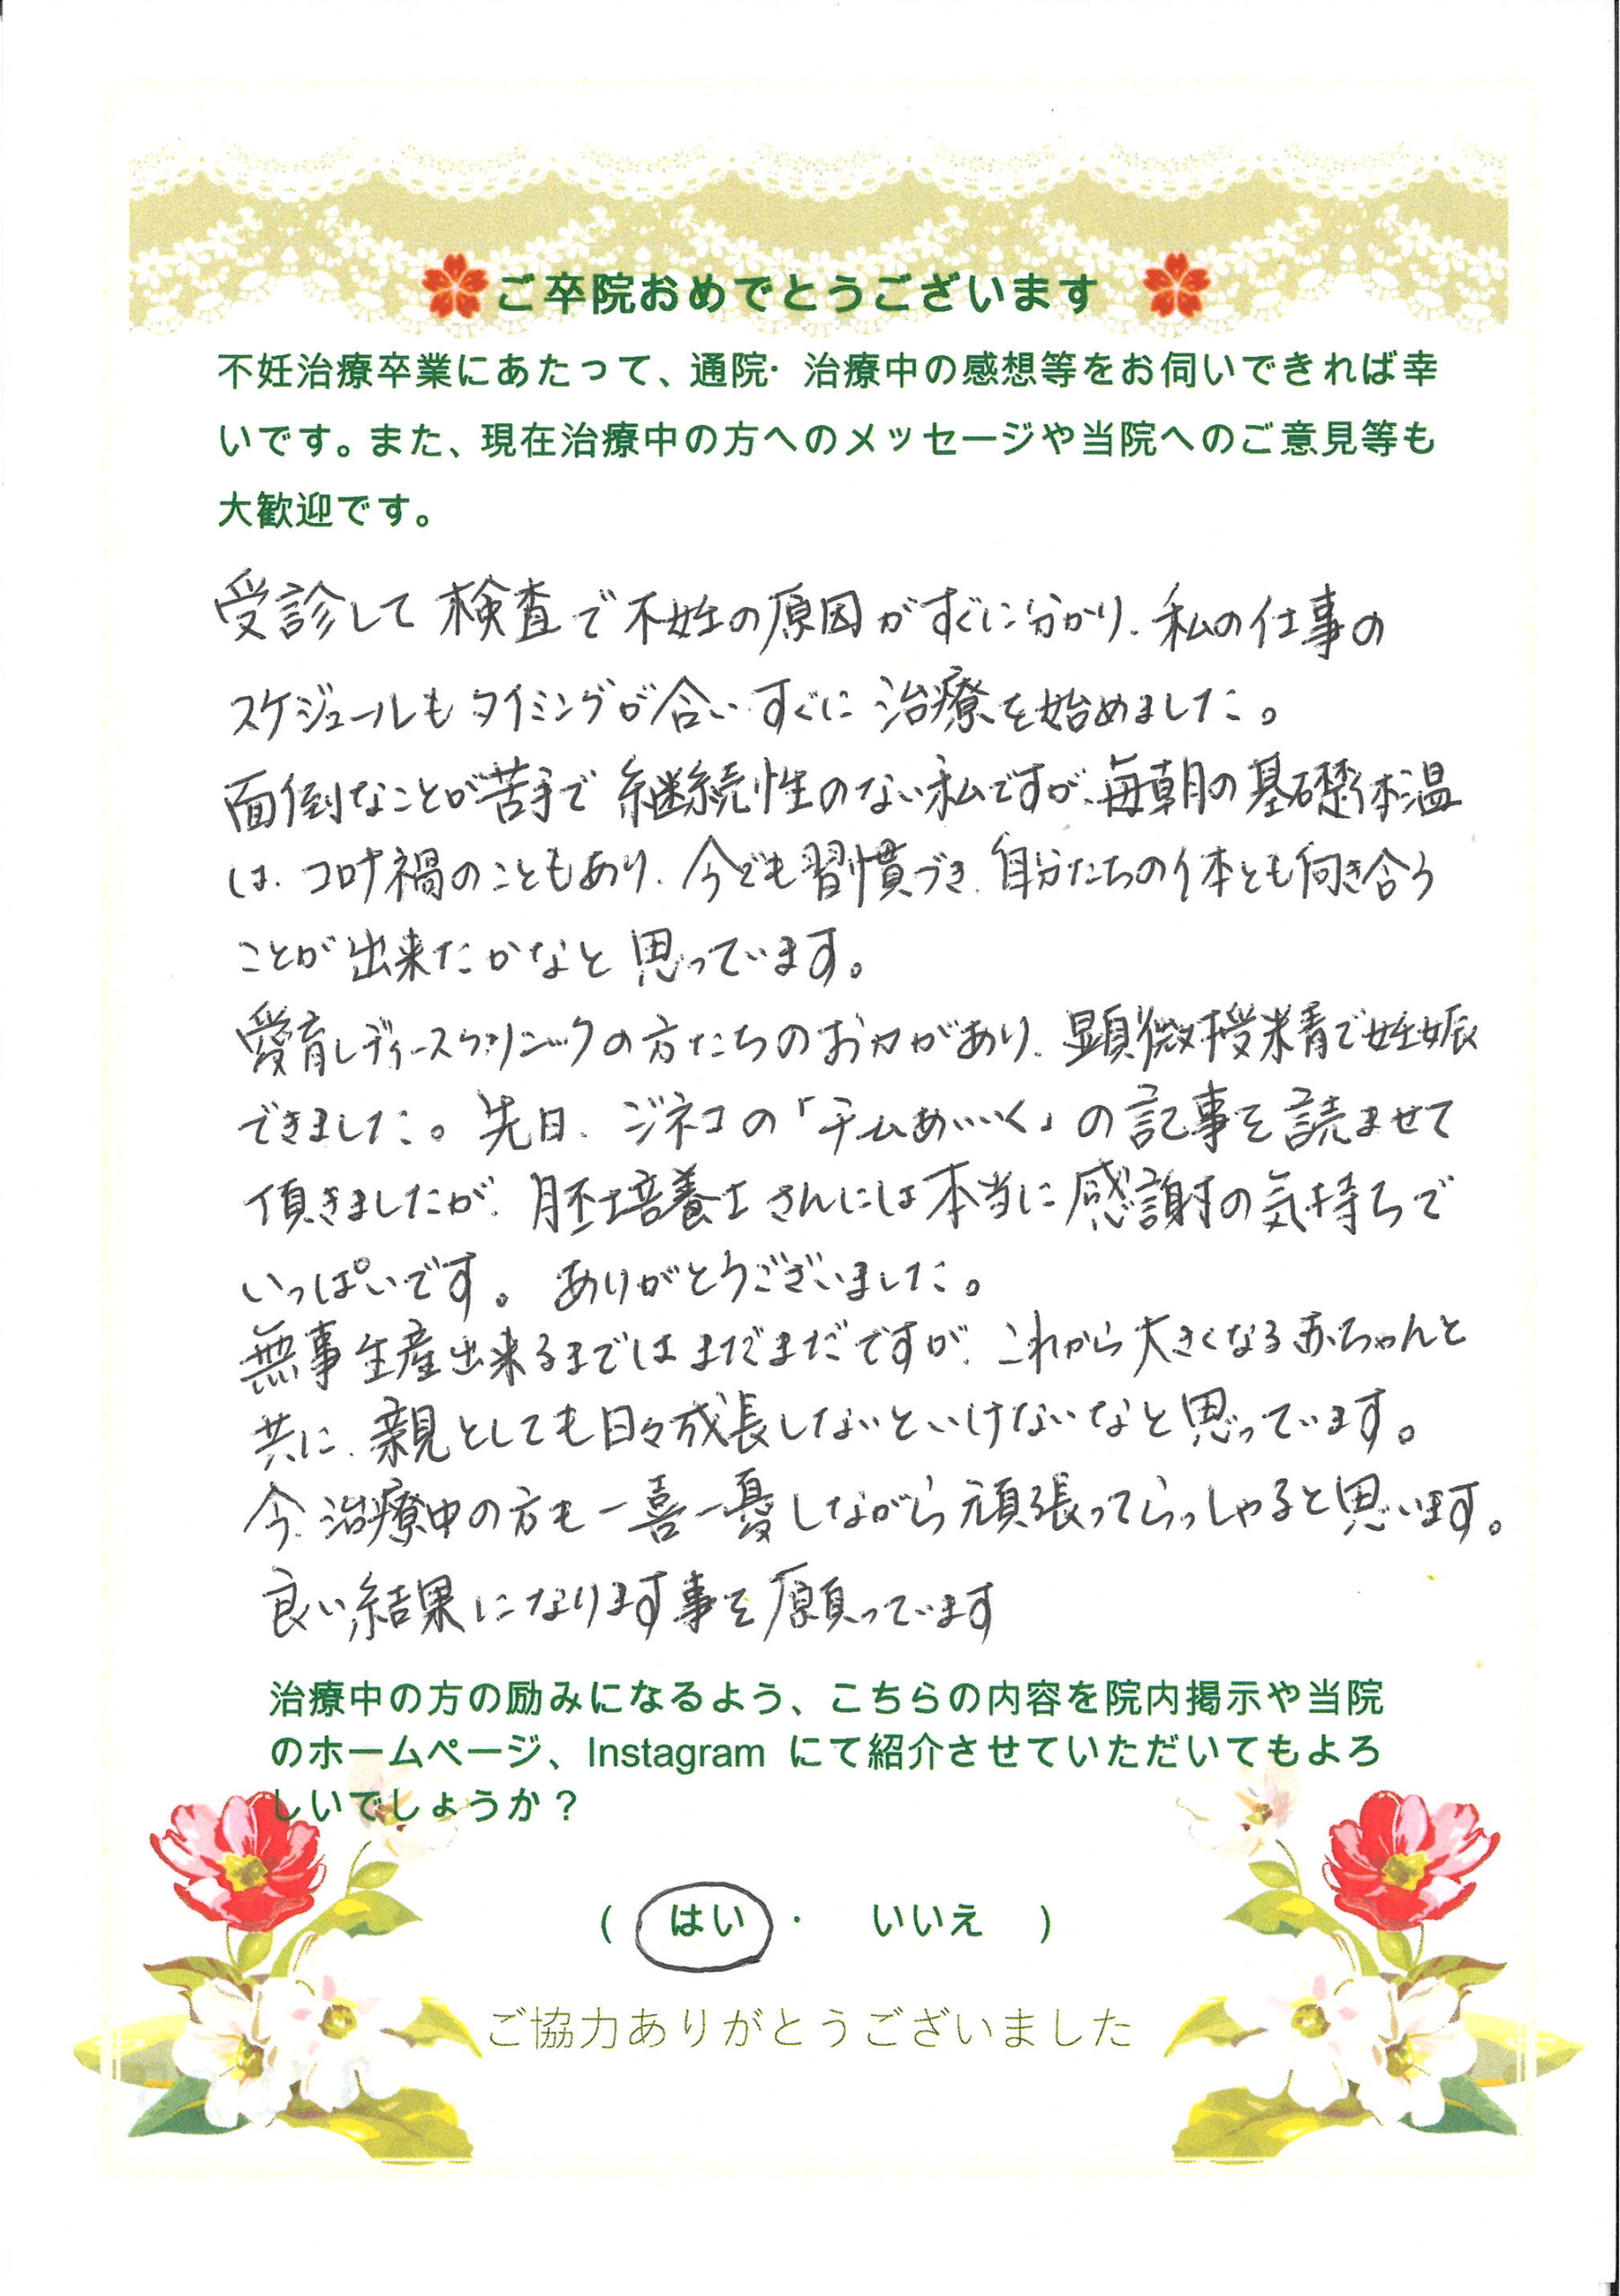 ご卒院おめでとうございます
不妊治療卒業にあたって、通院・治療中の感想等をお伺いできれば幸
いです。また、現在治療中の方へのメッセージや当院へのご意見等も
大歓迎です。
受診して検査で不妊の原因がすぐに分かり、私の仕事の
スケジュールもタイミングが合い すぐに治療を始めました。
面倒なことが苦手で継続性のない私ですが、毎朝の基礎体温
は、コロナ禍のこともあり、今でも習慣づき、自分たちの体とも向き合う
ことが出来たかなと思っています。
愛育レディースクリニックの方たちのお力があり、顕微授精で妊娠
できました。先日、ジネコの「チームあいいく」の記事を読ませて
頂きましたが、胚培養士さんには本当に感謝の気持ちで
いっぱいです。ありがとうございました。
無事生産出来るまではまだまだですが、これから大きくなる赤ちゃんと
共に、親としても日々成長しないといけないなと思っています。
今、治療中の方も一喜一憂しながら頑張ってらっしゃると思います。
良い結果になります事を願っています
治療中の方の励みになるよう、こちらの内容を院内掲示や当院
のホームページ、Instagram にて紹介させていただいてもよろ
しいでしょうか？
（ はい ・ いいえ ）
ご協力ありがとうございました